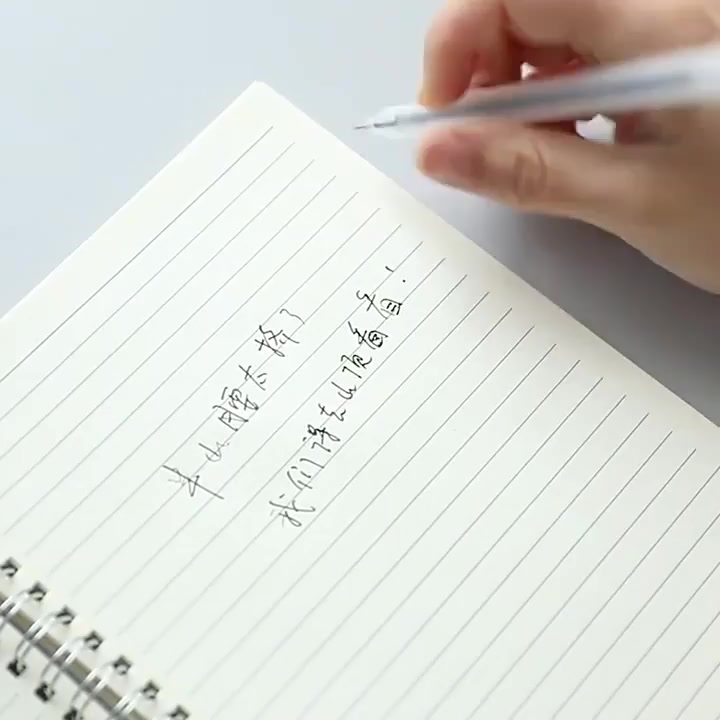 半山腰太挤了
我们得去山顶看看!